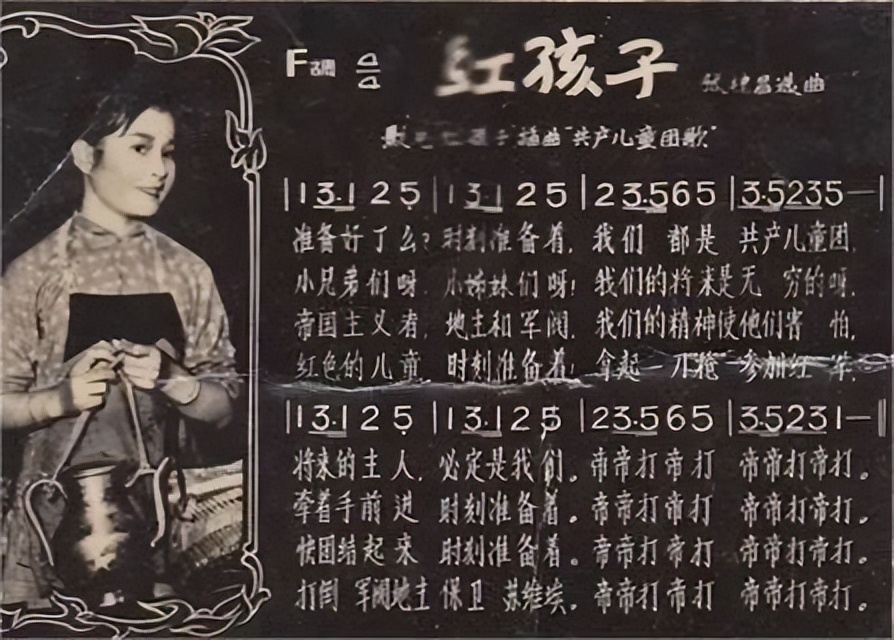 F调 红孩子 选曲
插曲"共产儿童团歌"
|13·1 25|13·1 25|23·565|3·5235—|
准备好了么?时刻准备着,我们 都是 共产儿童团,
小兄弟们呀,小姊妹们呀!我们的将来是无 穷的呀,
帝国主义者,地主和军阀,我们的精神使他们害 怕,
红色的儿童,时刻准备着!拿起 刀枪 参加红 军,
|13·125|13·125|23·565|3·5231—||
将来的主人,必定是我们。帝帝打帝打 帝帝打帝打。
牵着手前进 时刻准备着。帝帝打帝打 帝帝打帝打。
快团结起来 时刻准备着。帝帝打帝打 帝帝打帝打。
打 军阀地主 保卫 苏维埃。帝帝打帝打 帝帝打帝打。